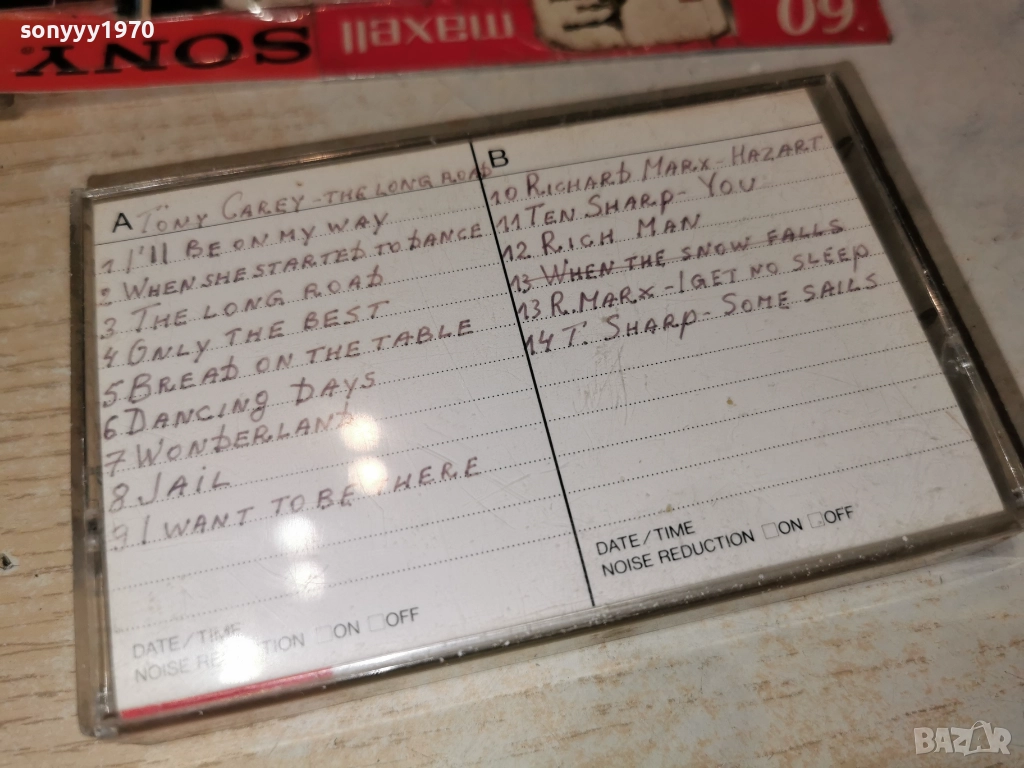 sonyyy1970
SONY
maxell
60
A TONY CAREY - THE LONG ROAD
1 I'll BE ON MY WAY
2 WHEN SHE STARTED TO DANCE
3 THE LONG ROAD
4 ONLY THE BEST
5 BREAD ON THE TABLE
6 DANCING DAYS
7 WONDERLAND
8 JAIL
9 I WANT TO BE HERE
DATE/TIME
NOISE REDUCTION □ON □OFF
B
10 RICHARD MARX - HAZART
11 TEN SHARP - YOU
12 RICH MAN
13 WHEN THE SNOW FALLS
13 R. MARX - I GET NO SLEEP
14 T. SHARP - SOME SAILS
DATE/TIME
NOISE REDUCTION □ON □OFF
BAZAR